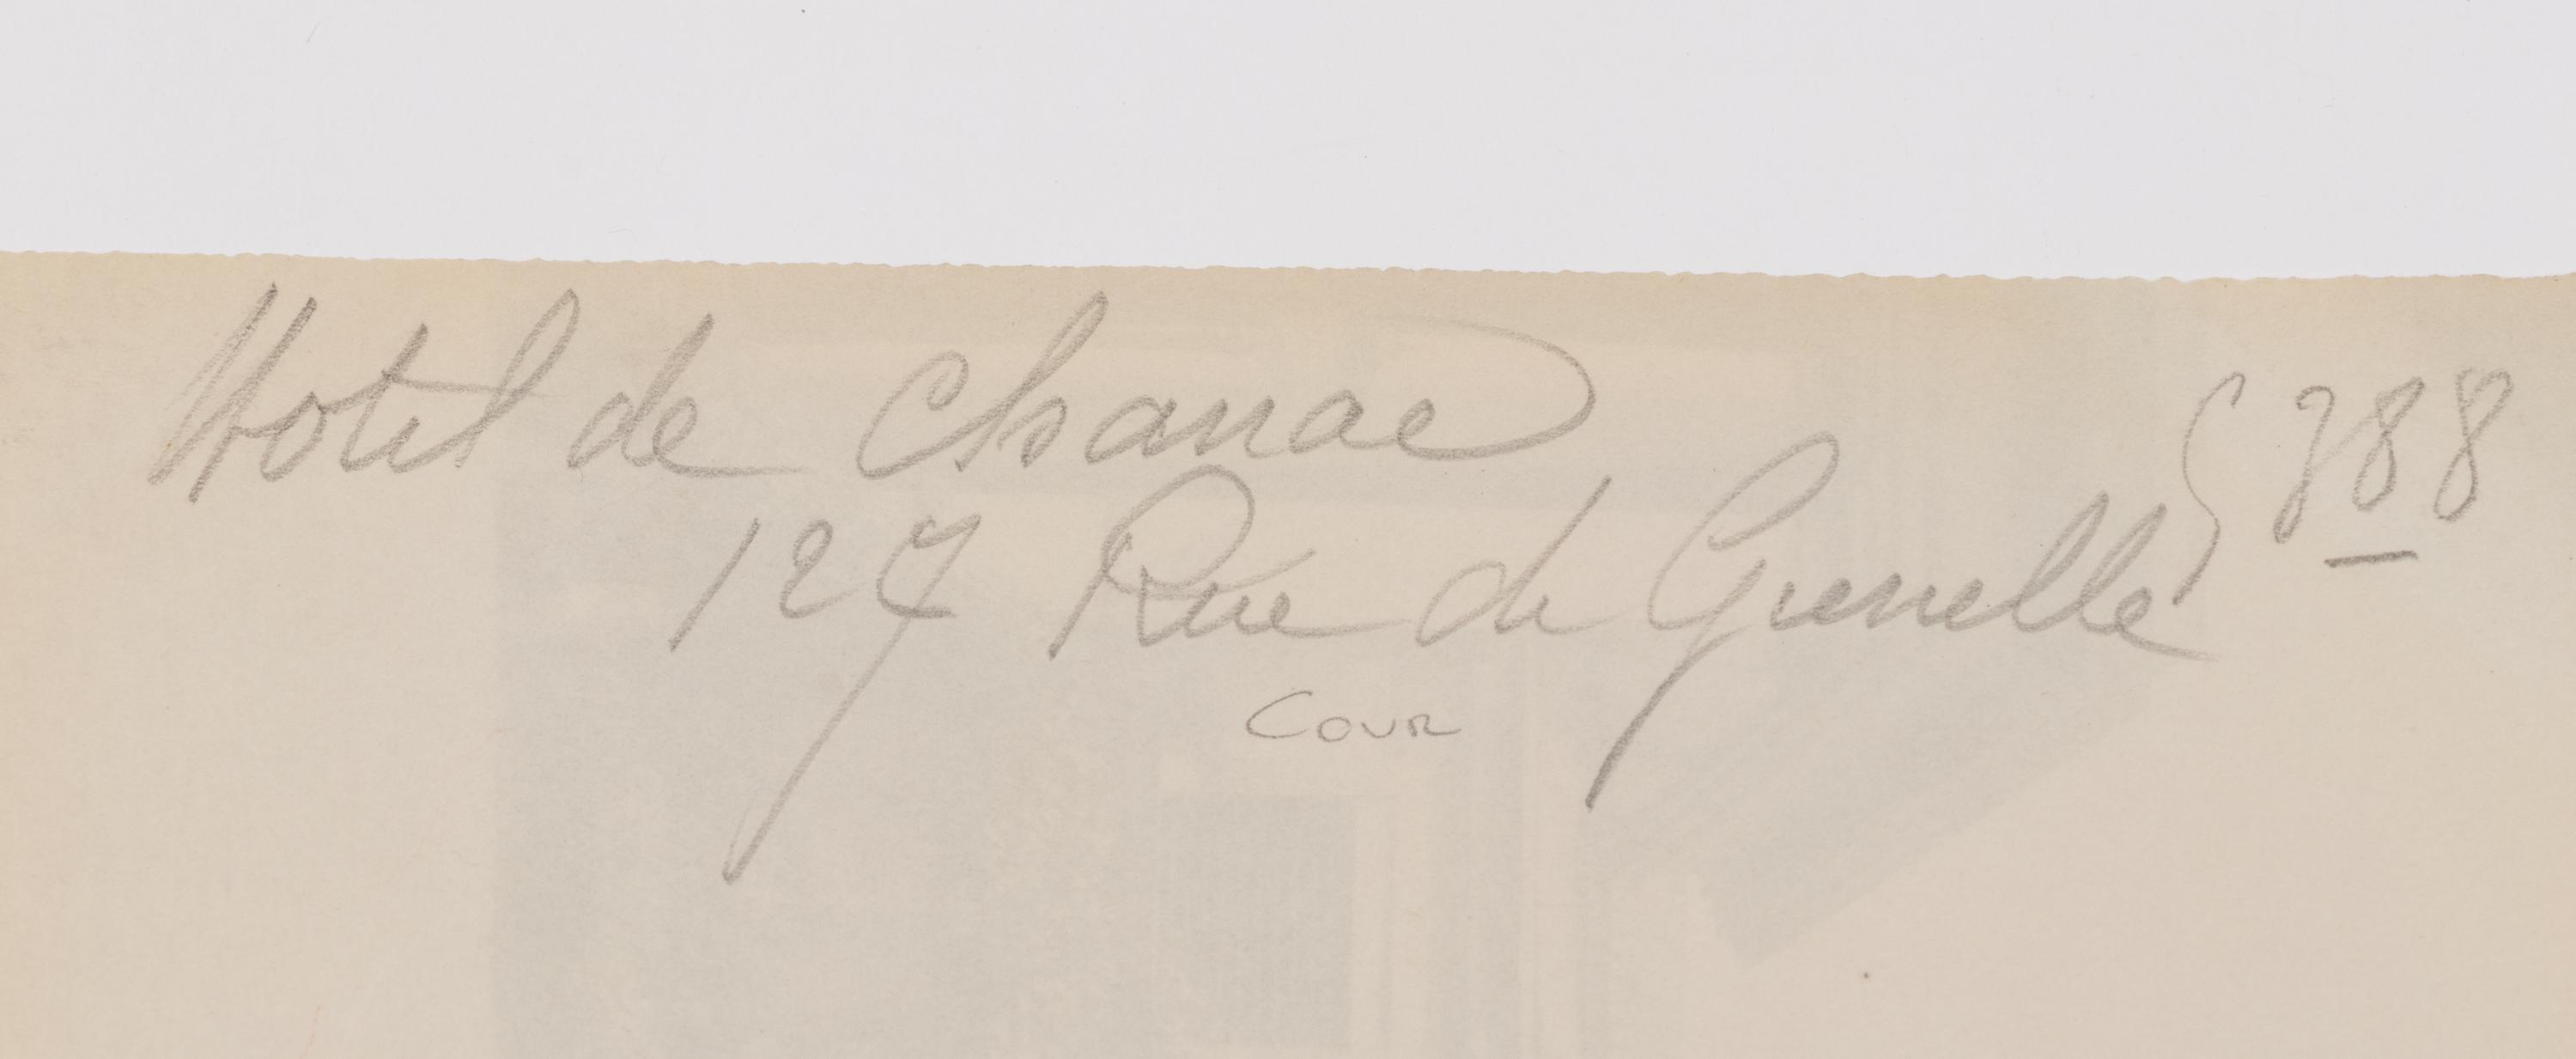 Hotel de Chanac
127 Rue de Grenelle 5388
COUR